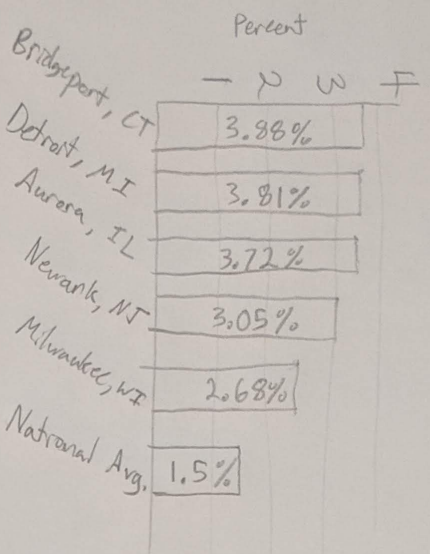 Percent
1 2 3 4
Bridgeport, CT
3.88%
Detroit, MI
3.81%
Aurora, IL
3.72%
Newark, NJ
3.05%
Milwaukee, WI
2.68%
National Avg.
1.5%